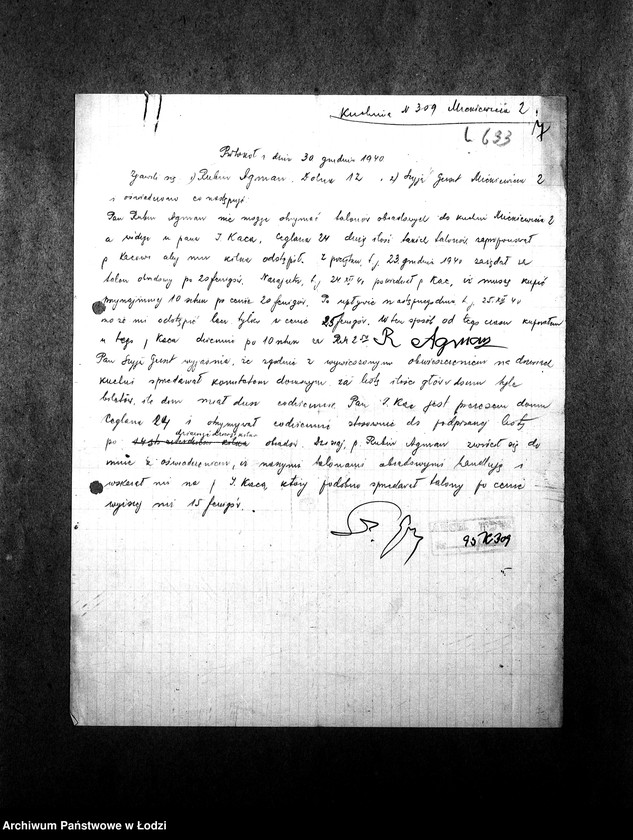 Kuchnia N 309 Mickiewicza 2
7
L 633
Protokół z dnia 30 grudnia 1940
Zjawili się 1) Rubin Agman Dolna 12, 2) Szyja Gerst Mickiewicza 2
i oświadczono co następuje:
Pan Rubin Agman nie mogąc otrzymać talonów obiadowych do kuchni Mickiewicza 2
a widząc u pana I. Kaca, Ceglana 24 dużą ilość takich talonów zaproponował
p Kacowi aby mu kilka odstąpił. Z początku t.j. 23 grudnia 1940 zażądał za
talon obiadowy po 20 fenigów. Nazajutrz, t.j. 24 XII 40 powiedział p Kac, iż muszę kupić
przynajmniej 10 sztuk po cenie 20 fenigów. Po upływie następnego dnia t.j. 25.XII 40
może mi odstąpić lecz tylko w cenie 25 fenigów. W ten sposób od tego czasu kupowałem
u tego p Kaca dziennie po 10 sztuk za Rm 2.50 R Agman
Pan Szyja Gerst wyjaśnia, że zgodnie z wywieszonym obwieszczeniem na drzwiach
kuchni sprzedawał komitetom domowym za listą ilości głów domu tyle
biletów, ile dom miał dusz codziennie. Pan I. Kac jest prezesem domu
Ceglana 24 i otrzymywał codziennie stosownie do podpisanej listy
po obiadów. Dzisiaj, p. Rubin Agman zwrócił się do
mnie z oświadczeniem, iż naszymi talonami obiadowymi handlują i
wskazał mi na p I. Kaca, który podobno sprzedawał talony po cenie
wyższej niż 15 fenigów.
309
Archiwum Państwowe w Łodzi